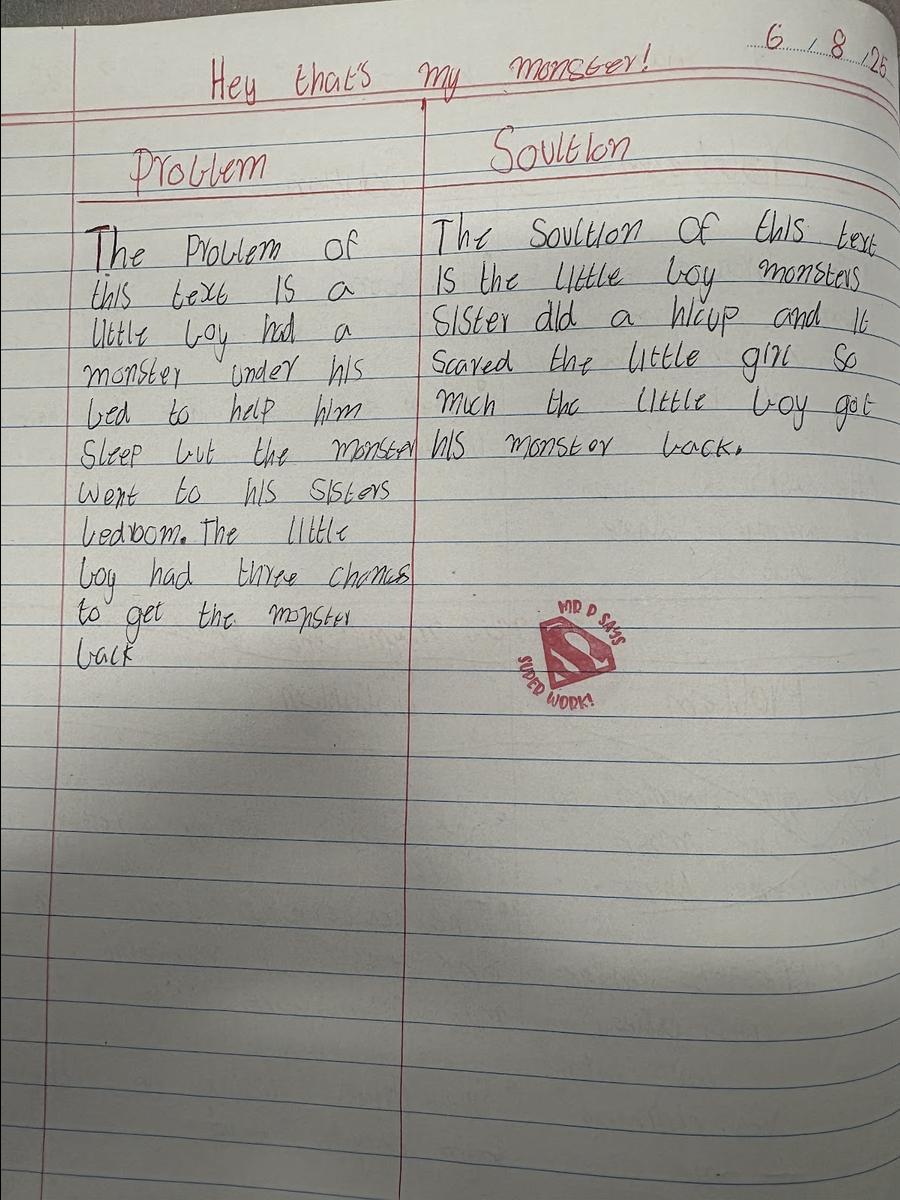 6 / 8 / 25
Hey that's my monster!
Problem
The Problem of
this text is a
little boy had a
monster under his
bed to help him
Sleep but the monster
went to his sisters
bedroom. The little
boy had three chances
to get the monster
back
Soultion
The Soultion Of this text
is the little boy monsters
sister did a hicup and it
scared the little girl so
much the little boy got
his monster back.
MR D SAYS
SUPER WORK!